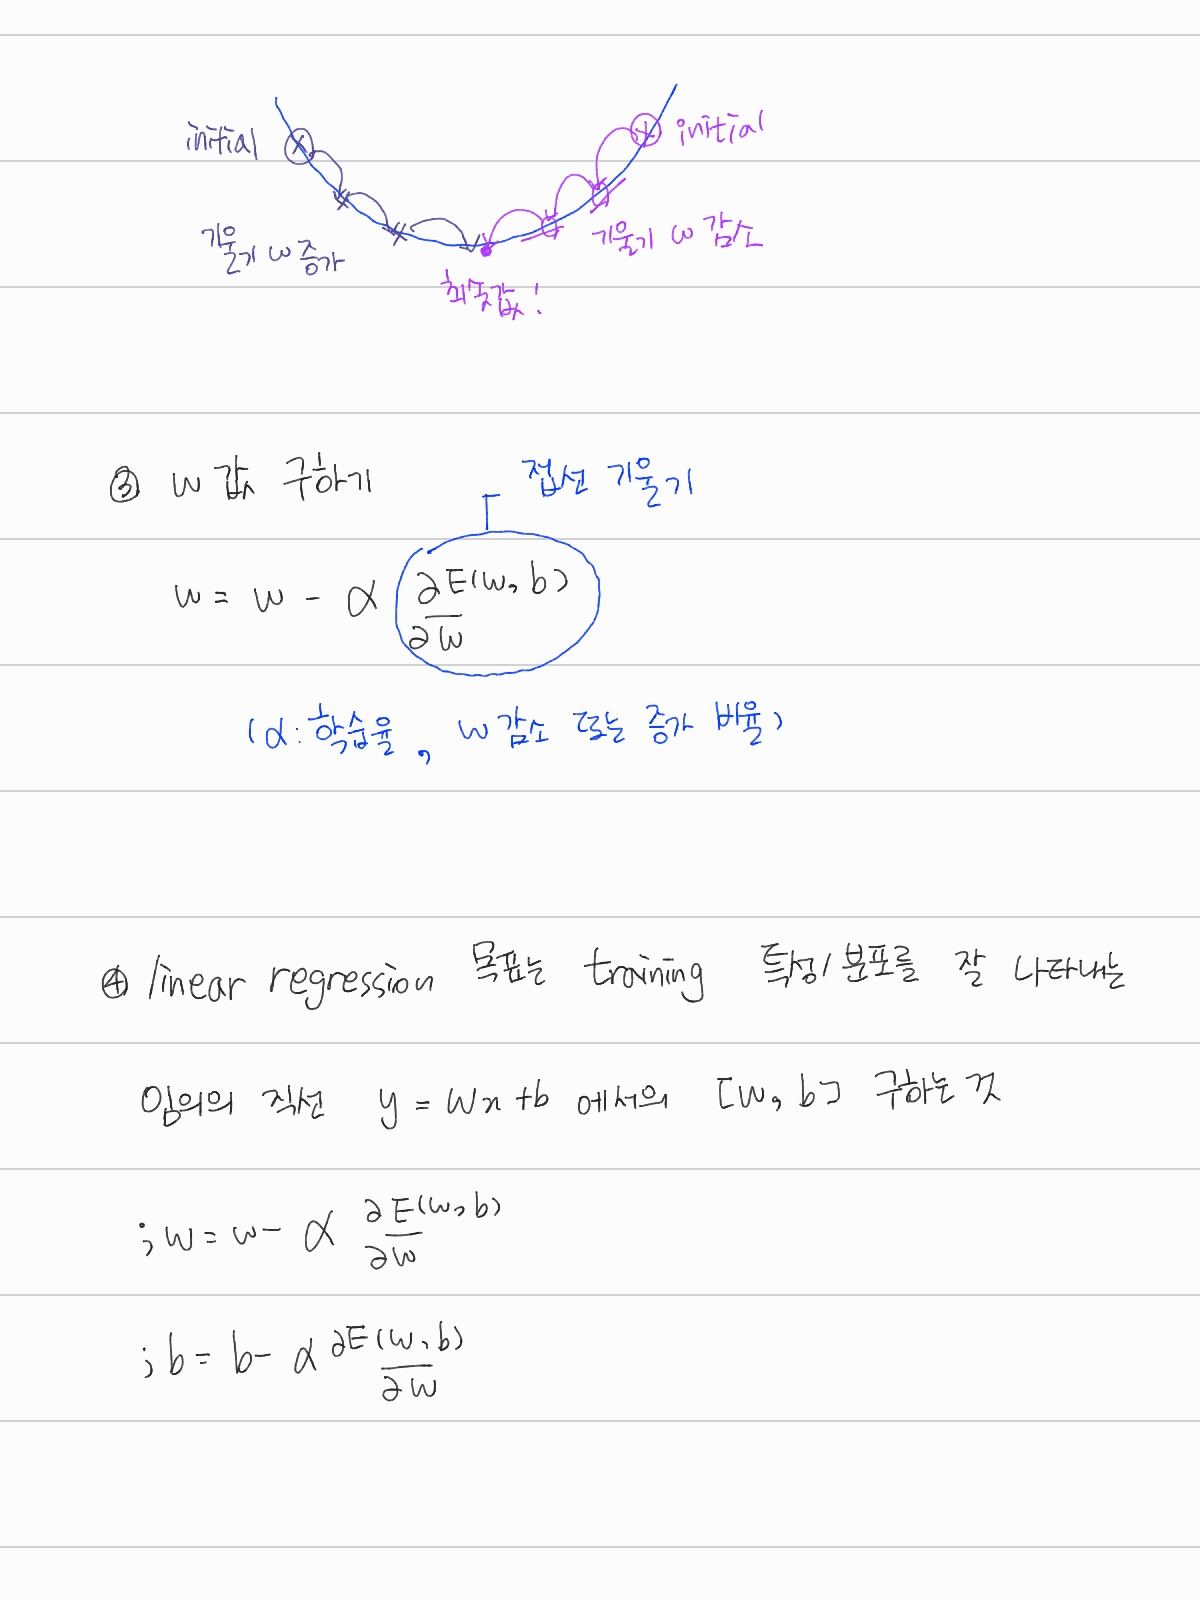 initial
initial
기울기 w 증가
기울기 w 감소
최솟값!
③ w 값 구하기
접선 기울기
w = w - α ∂E(w, b) / ∂w
(α: 학습율, w 감소 또는 증가 비율)
④ linear regression 목표는 training 특성/분포를 잘 나타내는
임의의 직선 y = Wx + b 에서의 [w, b] 구하는 것
; w = w - α ∂E(w, b) / ∂w
; b = b - α ∂E(w, b) / ∂w